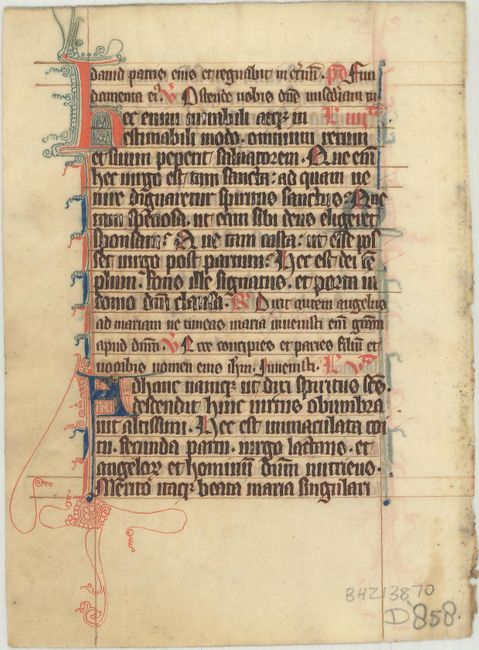 dauid patris eius et regnabit in et̄nū. p̄s Fun
damenta ei. V Ostende nobis dn̄e mīam tu
Hec enim mirabili atqꝫ in
estimabili modo. omnium rerum
et suum peperit saluatorem. Que eni̅
hec virgo est tam sancta: ad quam ve
nire dignaretur spiritus sanctus: Que
tam speciosa. ut eam sibi deus eligeret
sponsam: Que tam casta: ut esse pos
set virgo post partum: Hec est dei te̅
plum. fons ille signatus. et porta in
domo dn̄i clausa. R Dixit autem angelus
ad mariam ne timeas maria inuenisti eni̅ gr̄am
apud dn̄m. V Ecce concipies et paries filiū et
uocabis nomen eius ih̄m. Inuenisti.
Ad hanc namqꝫ ut dixi spiritus sc̄s
descendit huic uirtus obumbra
uit altissimi. Hec est immaculata coi
tu. fecunda partu. virgo lactans. et
angeloꝝ et hominū dn̄m nutriens.
Merito itaqꝫ beata maria singulari
BHZ13870
D858.